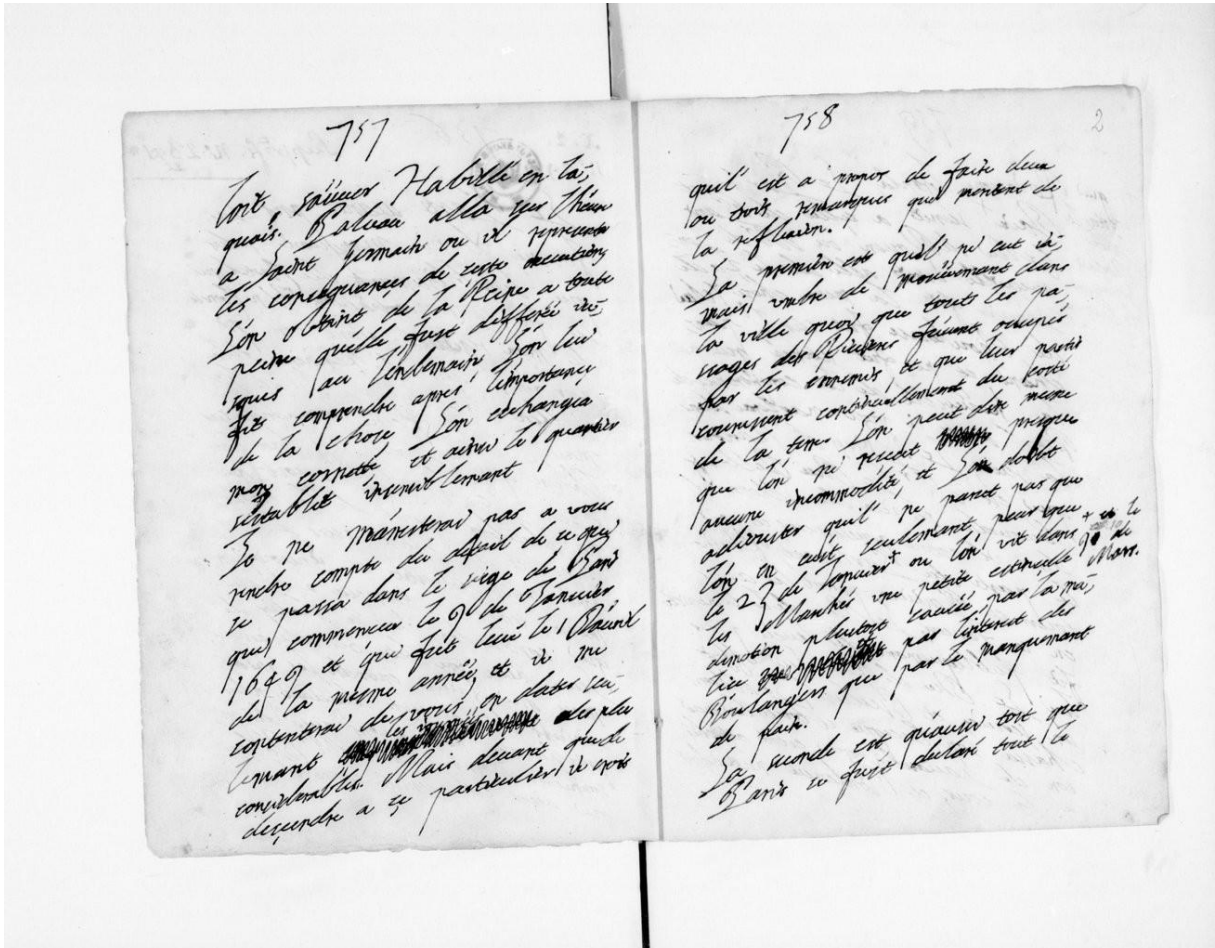 757
loit sauuer Habillé en la,
quais. Paluau alla sur l'heure
a Saint Germain ou il representa
les consequances de ceste execution,
L'on obtint de la Reine a toute
peine quelle fust differée ius,
ques au lendemain L'on lui
fit comprendre apres l'importance
de la chose L'on eschangea
mon cornette et ainsi le quartier
s'establit insensiblemant
Je ne m'aresterai pas a vous
rendre compte du detail de ce qui
se passa dans le siege de Paris
qui commencea le 9 de Ianuier,
1649 et qui fut leué le 1 d'auril
de la mesme année, et ie me
contenterai de vous en dater seu,
lemant les iournées des plus
considerables. Mais deuant que de
descendre a ce particulier ie crois
758
2
quil est a propos de faire deux
ou trois remarques qui meritent de
la reflexion.
La premiere est quil ne eut ia,
mais umbre de mouuemant dans
la ville quoi que touts les pa,
ssages des Riuieres fussent occupés
par les ennemis, et que leur partis
courussent continuellemant du costé
de la terre L'on peut dire mesme
que l'on ne receut presque
aucune incommodité, et L'on doibt
adiouster quil ne parut pas que
l'on en eust seulemant peur que
le 23 de Ianuier + ou l'on vit dans
+ et le 9 de Mars.
les Marchés une petite estincelle
d'emotion plustost causée, par la ma,
lice par l'interest des
Boulangers que par le manquemant
de pain.
La seconde est qu'aussi tost que
Paris se fust declaré tout le